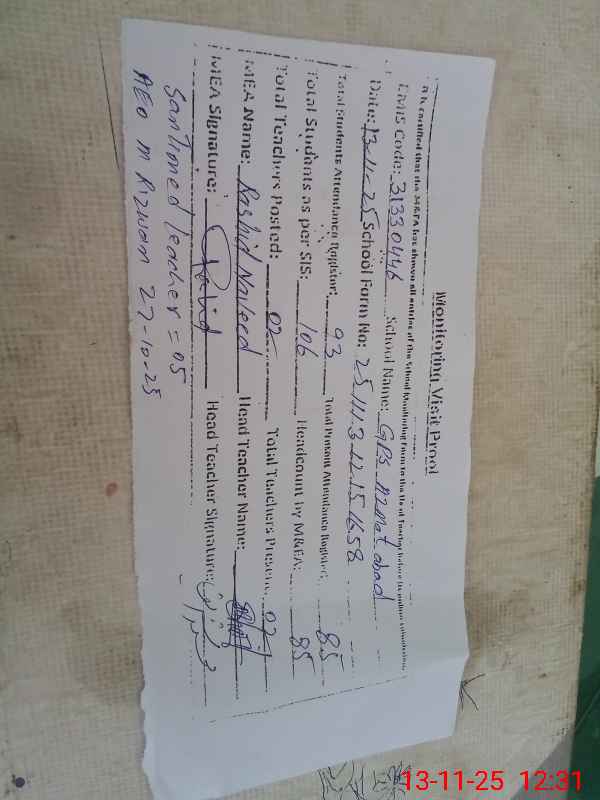 Monitoring Visit Proof
It is certified that the M&EA has shown all entries of the School Monitoring Form to the Head Teacher before its online submission.
EMIS Code: 31330446 School Name: GPS Azmat abad
Date: 13-11-25 School Form No:
Total Students Attendance Register: 93 Total Present Attendance Register: 85
Total Students as per SIS: 106 Headcount by M&EA: 85
Total Teachers Posted: 02 Total Teachers Present: 02
MEA Name: Rashid Naveed Head Teacher Name:
MEA Signature: Rashid Head Teacher Signature:
Santioned teacher = 05
AEO M Rizwan 27-10-25
13-11-25 12:31